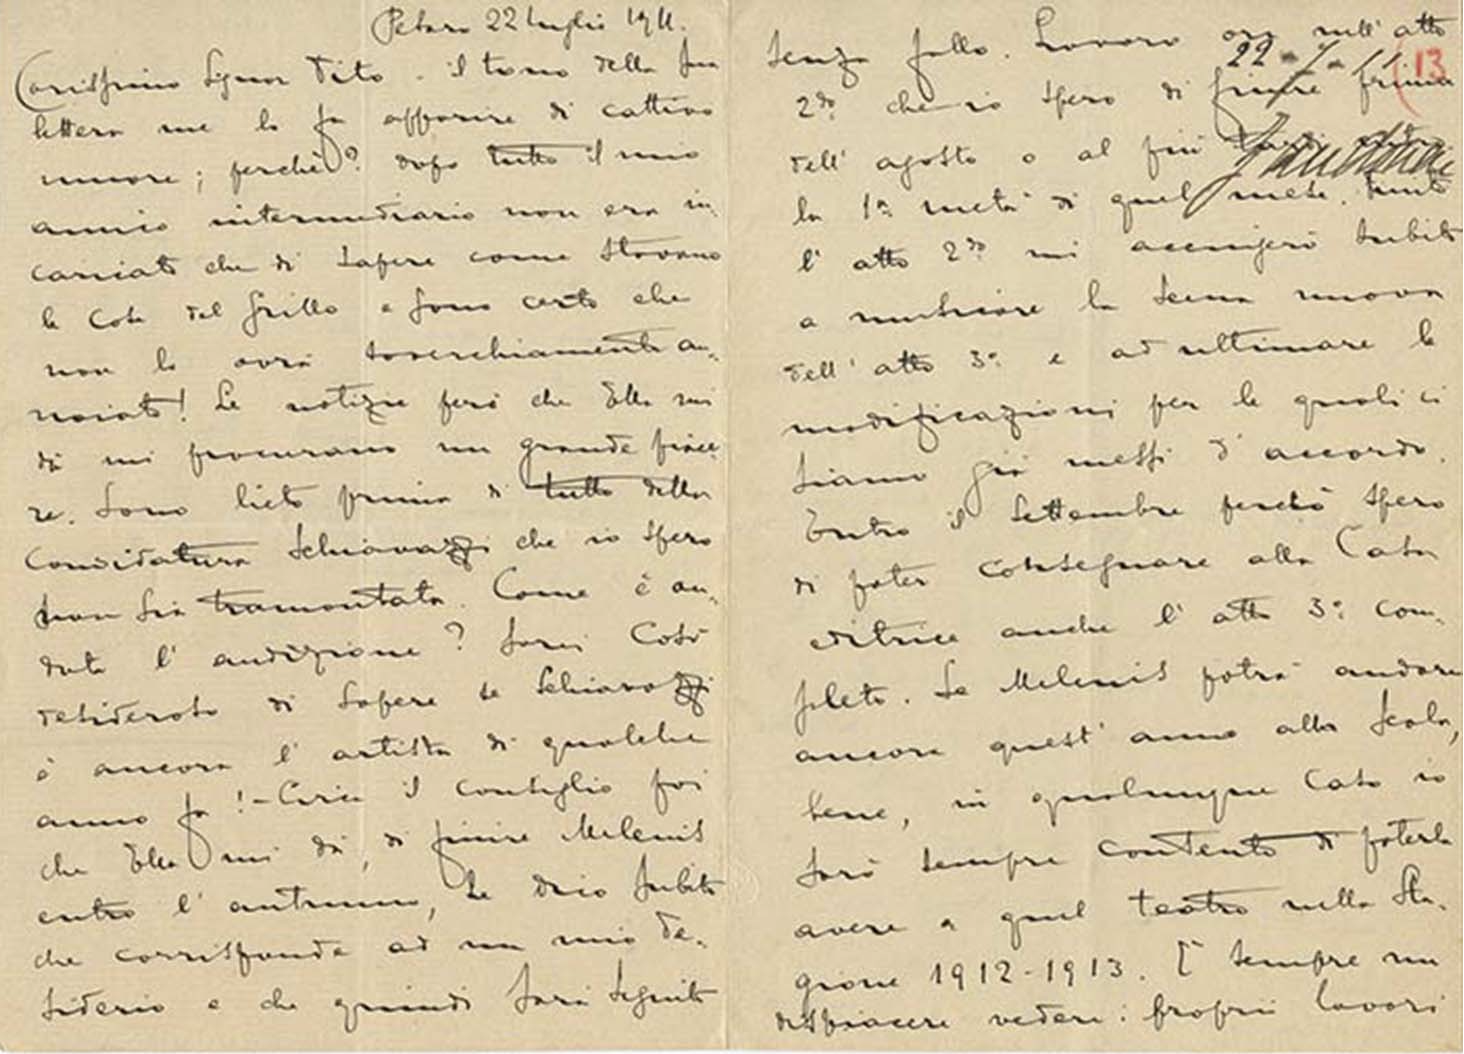 Pesaro 22 luglio 1911.
Carissimo Signor Tito. Il tono della sua
lettera me lo fa apparire di cattivo
umore; perchè? dopo tutto il mio
amico intermediario non era in-
caricato che di sapere come stavano
le cose del Grillo e sono certo che
non lo avrà soverchiamente an-
noiato! Le notizie però che Ella mi
dà mi procurano un grande piace-
re. Sono lieto prima di tutto della
Candidatura Schiavazzi che io spero
non sia tramontata. Come è an-
data l'audizione? Sarei così
desideroso di sapere se Schiavazzi
è ancora l'artista di qualche
anno fa! - Circa il consiglio poi
che Ella mi dà, di finire Melenis
entro l'autunno, Le dico subito
che corrisponde ad un mio de-
siderio e che quindi sarà seguito
senza fallo. Lavoro ora nell'atto
22-7-11 13
2do che io spero di finire prima
dell'agosto o al più
la 1a metà di quel mese. Finito
l'atto 2do mi accingerò subito
a musicare la scena nuova
dell'atto 3o e ad ultimare le
modificazioni per le quali ci
siamo già messi d'accordo.
Entro il Settembre perciò spero
di poter consegnare alla Casa
editrice anche l'atto 3o com-
pleto. Se Melenis potrà andare
ancora quest'anno alla Scala,
bene, in qualunque caso io
sarò sempre contento di poterla
avere a quel teatro nella Sta-
gione 1912-1913. È sempre un
dispiacere vedere i proprii lavori